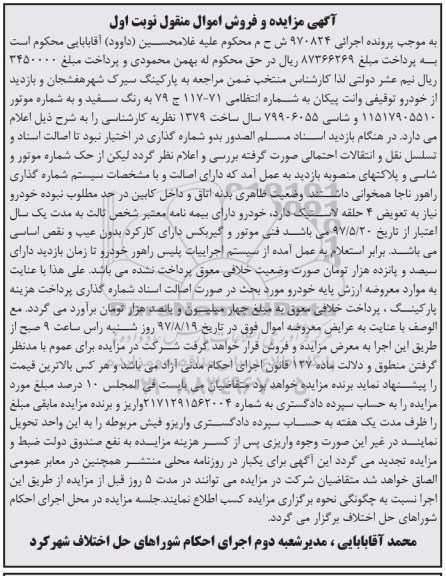 آگهی مزایده و فروش اموال منقول نوبت اول
به موجب پرونده اجرائی ۹۷۰۸۲۴ ش ح م محکوم علیه غلامحسین (داوود) آقابابایی محکوم است
به پرداخت مبلغ ۸۷۳۶۶۲۶۹ ریال در حق محکوم له بهمن محمودی و پرداخت مبلغ ۳۴۵۰۰۰۰
ریال نیم عشر دولتی لذا کارشناس منتخب ضمن مراجعه به پارکینگ سیرک شهرهفشجان و بازدید
از خودرو توقیفی وانت پیکان به شماره انتظامی ۷۱-۱۱۷ ج ۷۹ به رنگ سفید و به شماره موتور
۱۱۵۱۷۹۰۵۵۱۰ و شاسی ۷۹۹۰۶۰۵۵ سال ساخت ۱۳۷۹ نظریه کارشناسی را به شرح ذیل اعلام
می دارد. در هنگام بازدید اسناد مسلم الصدور بدو شماره گذاری در اختیار نبود تا اصالت اسناد و
تسلسل نقل و انتقالات احتمالی صورت گرفته بررسی و اعلام نظر گردد لیکن از حک شماره موتور و
شاسی و پلاکتهای منصوبه بازدید به عمل آمد که دارای اصالت و با مشخصات سیستم شماره گذاری
راهور ناجا همخوانی داشتند وضعیت ظاهری بدنه اتاق و داخل کابین در حد مطلوب نبوده خودرو
نیاز به تعویض ۴ حلقه لاستیک دارد، خودرو دارای بیمه نامه معتبر شخص ثالث به مدت یک سال
اعتبار از تاریخ ۹۷/۵/۲۰ می باشد فنی موتور و گیربکس دارای کارکرد بدون عیب و نقص اساسی
می باشد. برابر استعلام به عمل آمده از سیستم اجراییات پلیس راهور خودرو تا زمان بازدید دارای
سیصد و پانزده هزار تومان صورت وضعیت خلافی معوق پرداخت نشده می باشد. علی هذا با عنایت
به موارد معروضه ارزش پایه خودرو مورد بحث در صورت اصالت اسناد شماره گذاری پرداخت هزینه
پارکینگ ، پرداخت خلافی معوق به مبلغ چهار میلیون و پانصد هزار تومان برآورد می گردد. مع
الوصف با عنایت به عرایض معروضه اموال فوق در تاریخ ۹۷/۸/۱۹ روز شنبه راس ساعت ۹ صبح از
طریق این اجرا به معرض مزایده و فروش قرار خواهد گرفت شرکت در مزایده برای عموم با مدنظر
گرفتن منطوق و دلالت ماده ۱۲۷ قانون اجرای احکام مدنی آزاد می باشد و هر کس بالاترین قیمت
را پیشنهاد نماید برنده مزایده خواهد بود متقاضیان می بایست فی المجلس ۱۰ درصد مبلغ مورد
مزایده را به حساب سپرده دادگستری به شماره ۲۱۷۱۲۹۱۵۶۲۰۰۴واریز و برنده مزایده مابقی مبلغ
را ظرف مدت یک هفته به حساب سپرده دادگستری واریزو فیش مربوطه را به این واحد تحویل
نمایند در غیر این صورت وجوه واریزی پس از کسر هزینه مزایده به نفع صندوق دولت ضبط و
مزایده تجدید می گردد این آگهی برای یکبار در روزنامه محلی منتشر همچنین در معابر عمومی
الصاق خواهد شد متقاضیان شرکت در مزایده می توانند در مدت ۵ روز قبل از مزایده از طریق این
اجرا نسبت به چگونگی نحوه برگزاری مزایده کسب اطلاع نمایند.جلسه مزایده در محل اجرای احکام
شوراهای حل اختلاف برگزار می گردد.
محمد آقابابایی ، مدیرشعبه دوم اجرای احکام شوراهای حل اختلاف شهرکرد